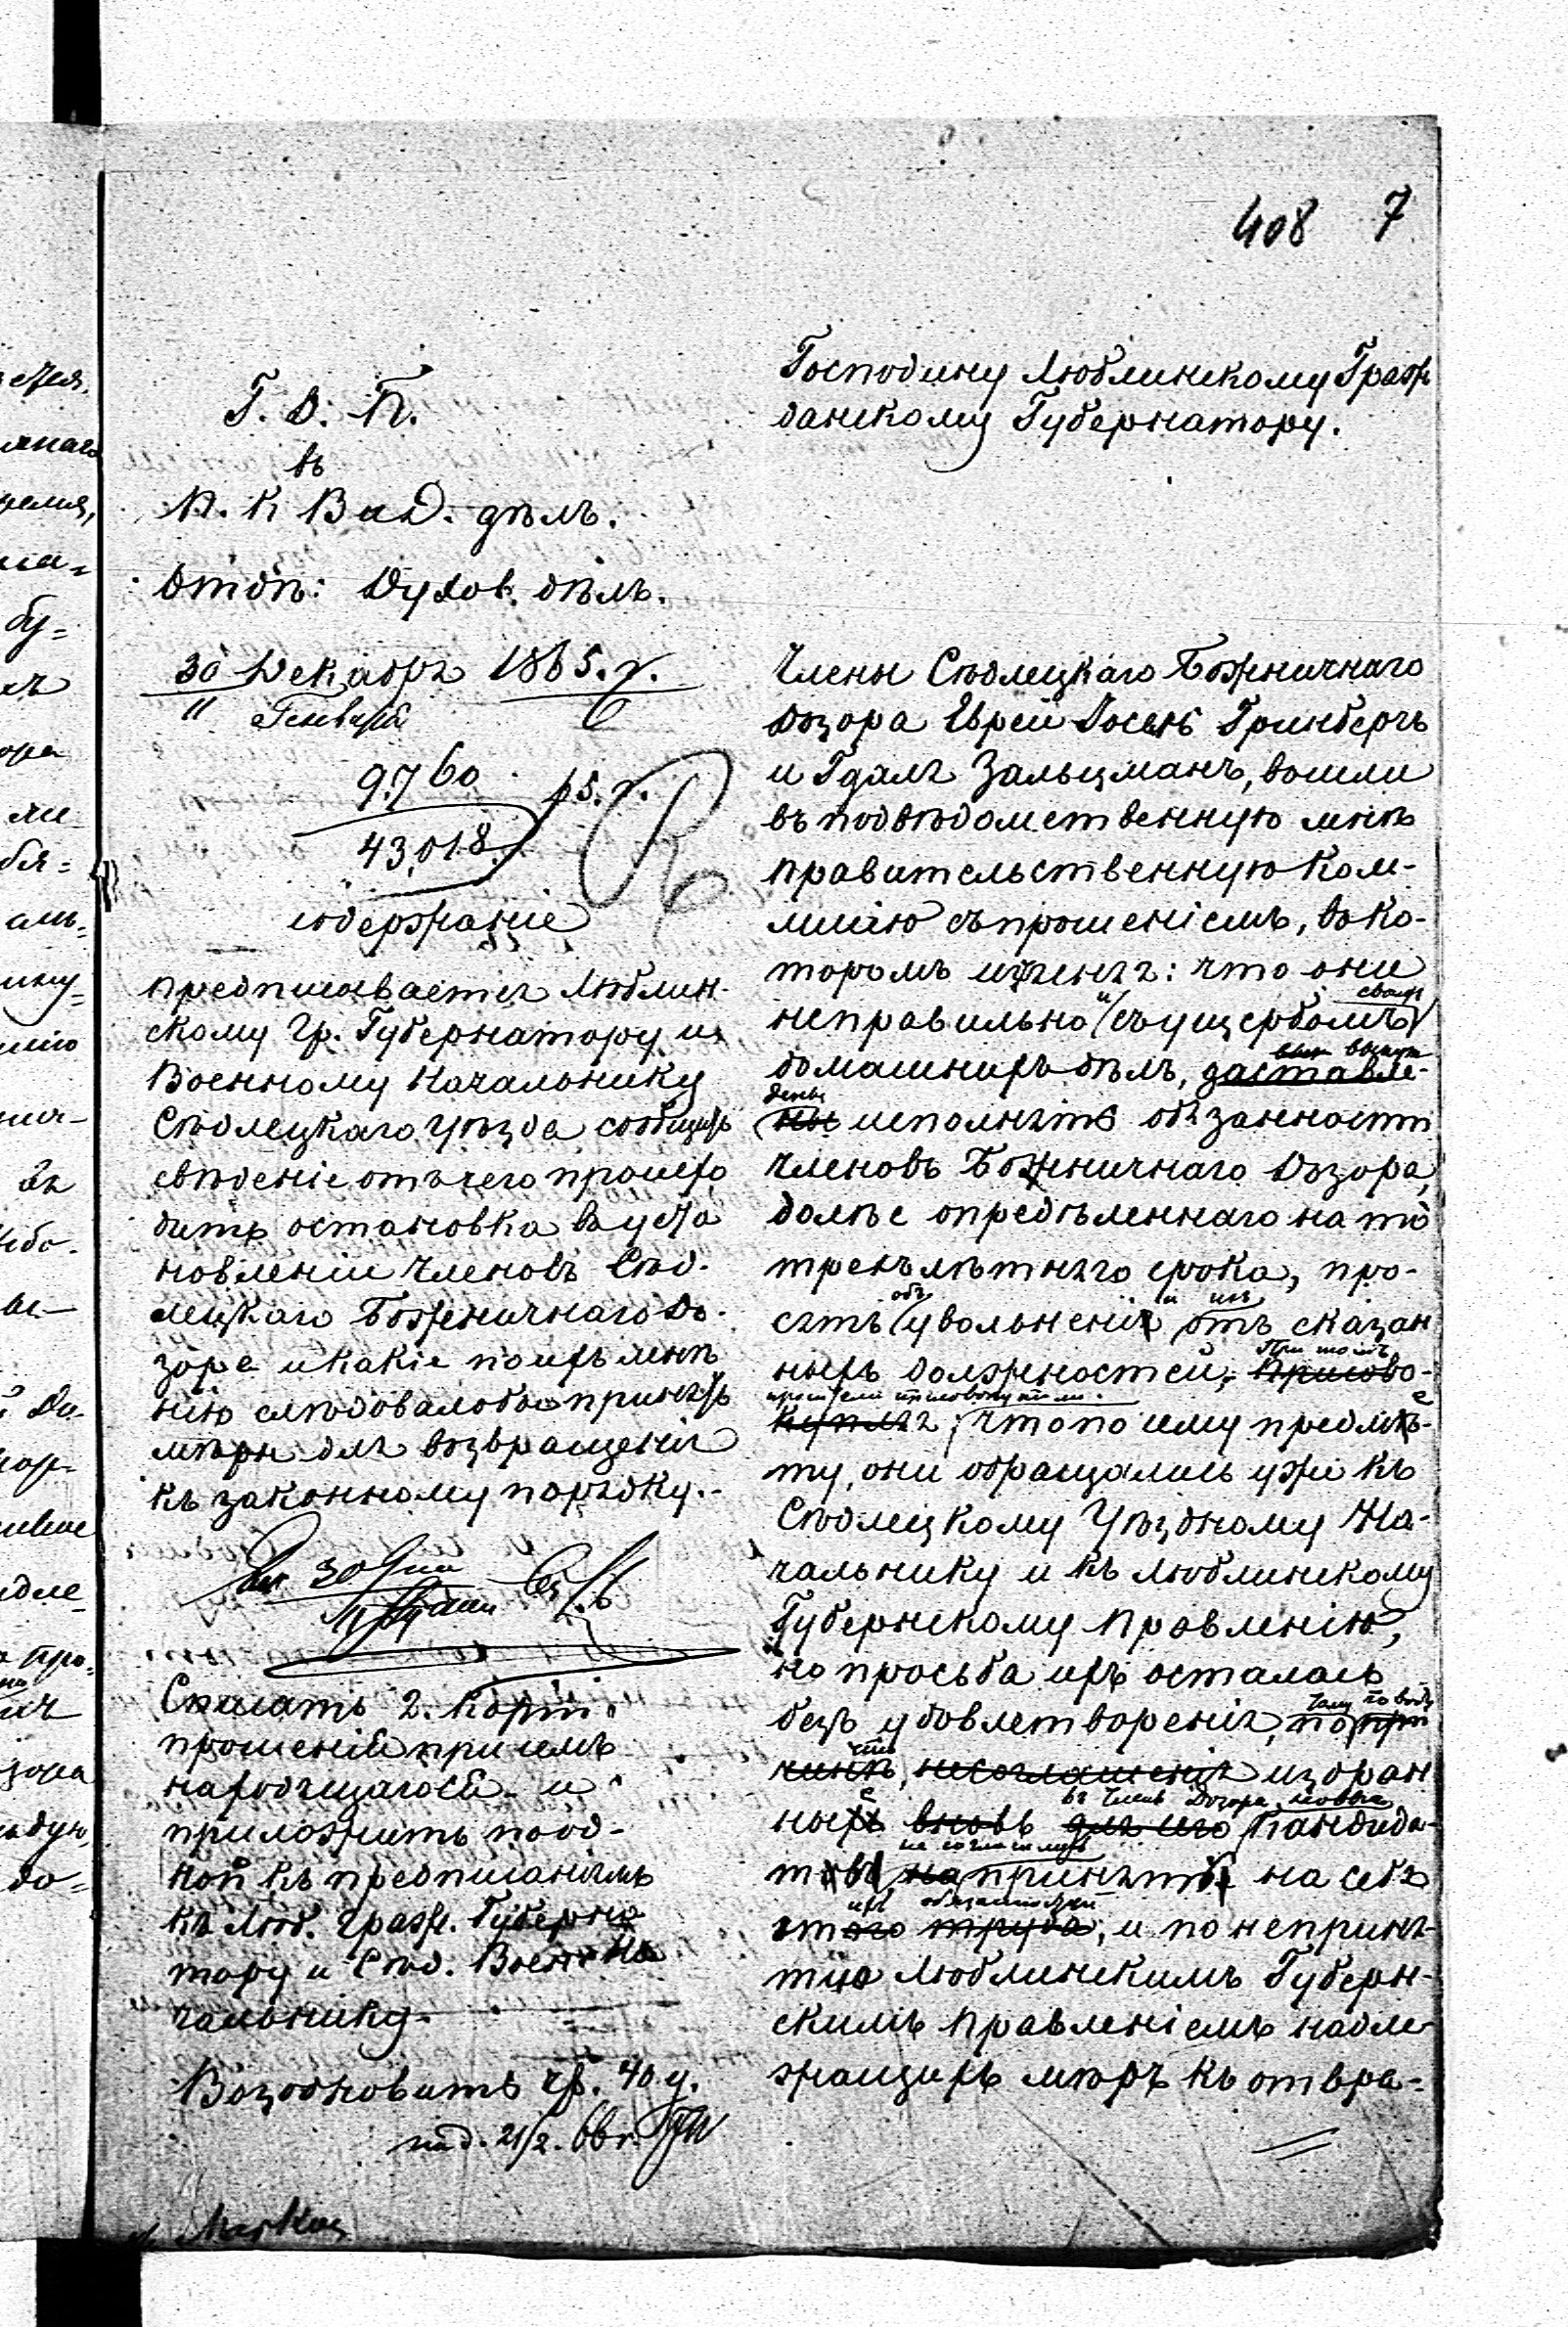 408 7
Г. Д. П.
въ
П. К. В и Д. дѣлъ.
Отдѣ: Духов. дѣлъ.
30 Декабря 1865. г.
11 Генваря 6
9.760
43,018 65. г.
содержаніе
предписывается Люблин-
скому Гр. Губернатору и
Военному Начальнику
Сѣдлецкаго Уѣзда сообщить
свѣденіе отъ чего происхо
дитъ остановка въ уста
новленіи членовъ Сѣд-
лецкаго Божничнаго До-
зора и какіе по ихъ мнѣ
нію слѣдовалобы принять
мѣры для возвращенія
къ законному порядку.-
30
Списать 2. копіи
прошенія при семъ
находящагося и
приложить по од-
ной къ предписаніямъ
къ Люб. Гражд. Губерна
тору и Сѣд. Воен. На
чальнику.
Возобновить чр. 40 д.
21/2. 66 г.
Господину Люблинскому Граж
данскому Губернатору.
Члены Сѣдлецкаго Божничнаго
Дозора Еврей Іосекъ Гринбергъ
и Гдаля Зальцманъ, вошли
въ подвѣдомственную мнѣ
Правительственную Ком-
мисію съ прошеніемъ, въ ко-
торомъ что они
неправильно и съ ущербомъ своихъ
домашнихъ дѣлъ, заставле-
ны исполнять обязанности
членовъ Божничнаго Дозора,
долѣе опредѣленнаго на то
трехълѣтняго срока, про-
сятъ объ увольненіи ихъ отъ сказан
ныхъ должностей, При томъ Присово-
купляя, что по сему предме-
ту, они обращались уже къ
Сѣдлецкому Уѣздному На-
чальнику и къ Люблинскому
Губернскому Правленію,
но просьба ихъ осталась
безъ удовлетворенія, по при
чинѣ, что несоглашенія избран
ные вновь въ Члены Дозора новые для сего Кандида-
товъ не соглашались на принять на себя
этого труда, ихъ обязанностей и по непринѣ-
тію Люблинскимъ Губерн-
скимъ Правленіемъ надле-
жащихъ мѣръ къ отвра-